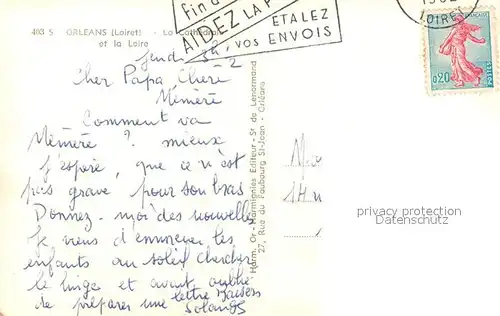 403 S ORLEANS (Loiret) - La Cathédrale
et la Loire
Fin d
AIDEZ LA P
ETALEZ
VOS ENVOIS
LOIRE
FRANÇAISE
0,20
POSTES
Jeudi 5h 1/2
Cher Papa Chéré
Mémère
Comment va
Mémère ? mieux
j'espère, que ce n'est
pas grave pour son bras
Donnez-moi des nouvelles
Je viens d'envoyer les
enfants au soleil chercher
le linge et avant oublié
de préparer une lettre Baisers
Solange
Harm. Or - Harmonies Editeur - St de Lenormand
27, Rue du Faubourg St-Jean - Orléans
privacy protection
Datenschutz